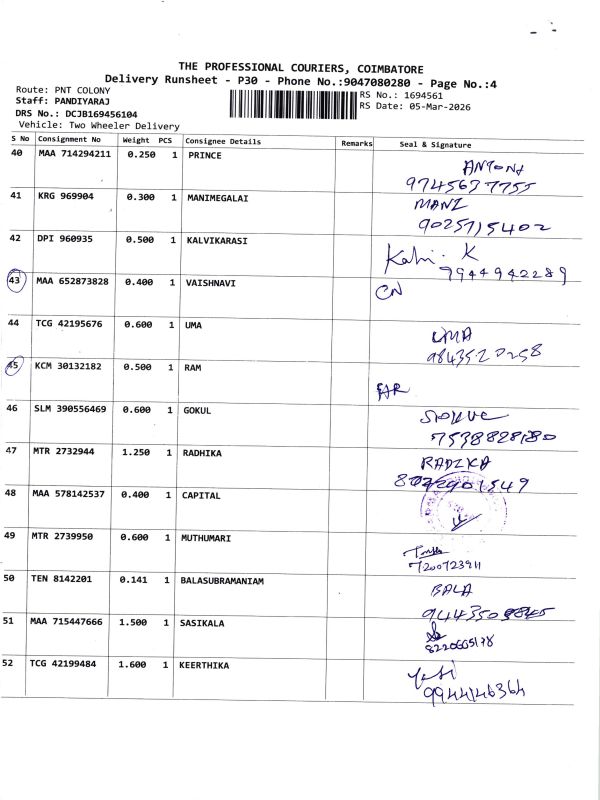 THE PROFESSIONAL COURIERS, COIMBATORE
Delivery Runsheet - P30 - Phone No.:9047080280 - Page No.:4
Route: PNT COLONY
Staff: PANDIYARAJ
DRS No.: DCJB169456104
Vehicle: Two Wheeler Delivery
RS No.: 1694561
RS Date: 05-Mar-2026
S No Consignment No Weight PCS Consignee Details Remarks Seal & Signature
40 MAA 714294211 0.250 1 PRINCE
ANTONY
9745637755
41 KRG 969904 0.300 1 MANIMEGALAI
MANI
9025715402
42 DPI 960935 0.500 1 KALVIKARASI
K
7944942289
43 MAA 652873828 0.400 1 VAISHNAVI
CN
44 TCG 42195676 0.600 1 UMA
UMA
45 KCM 30132182 0.500 1 RAM
46 SLM 390556469 0.600 1 GOKUL
47 MTR 2732944 1.250 1 RADHIKA
RADIKA
48 MAA 578142537 0.400 1 CAPITAL
49 MTR 2739950 0.600 1 MUTHUMARI
7200723911
50 TEN 8142201 0.141 1 BALASUBRAMANIAM
BALA
51 MAA 715447666 1.500 1 SASIKALA
52 TCG 42199484 1.600 1 KEERTHIKA
9944146364